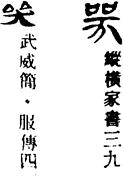 哭
縱橫家書三九
哭
武威簡・服傳四